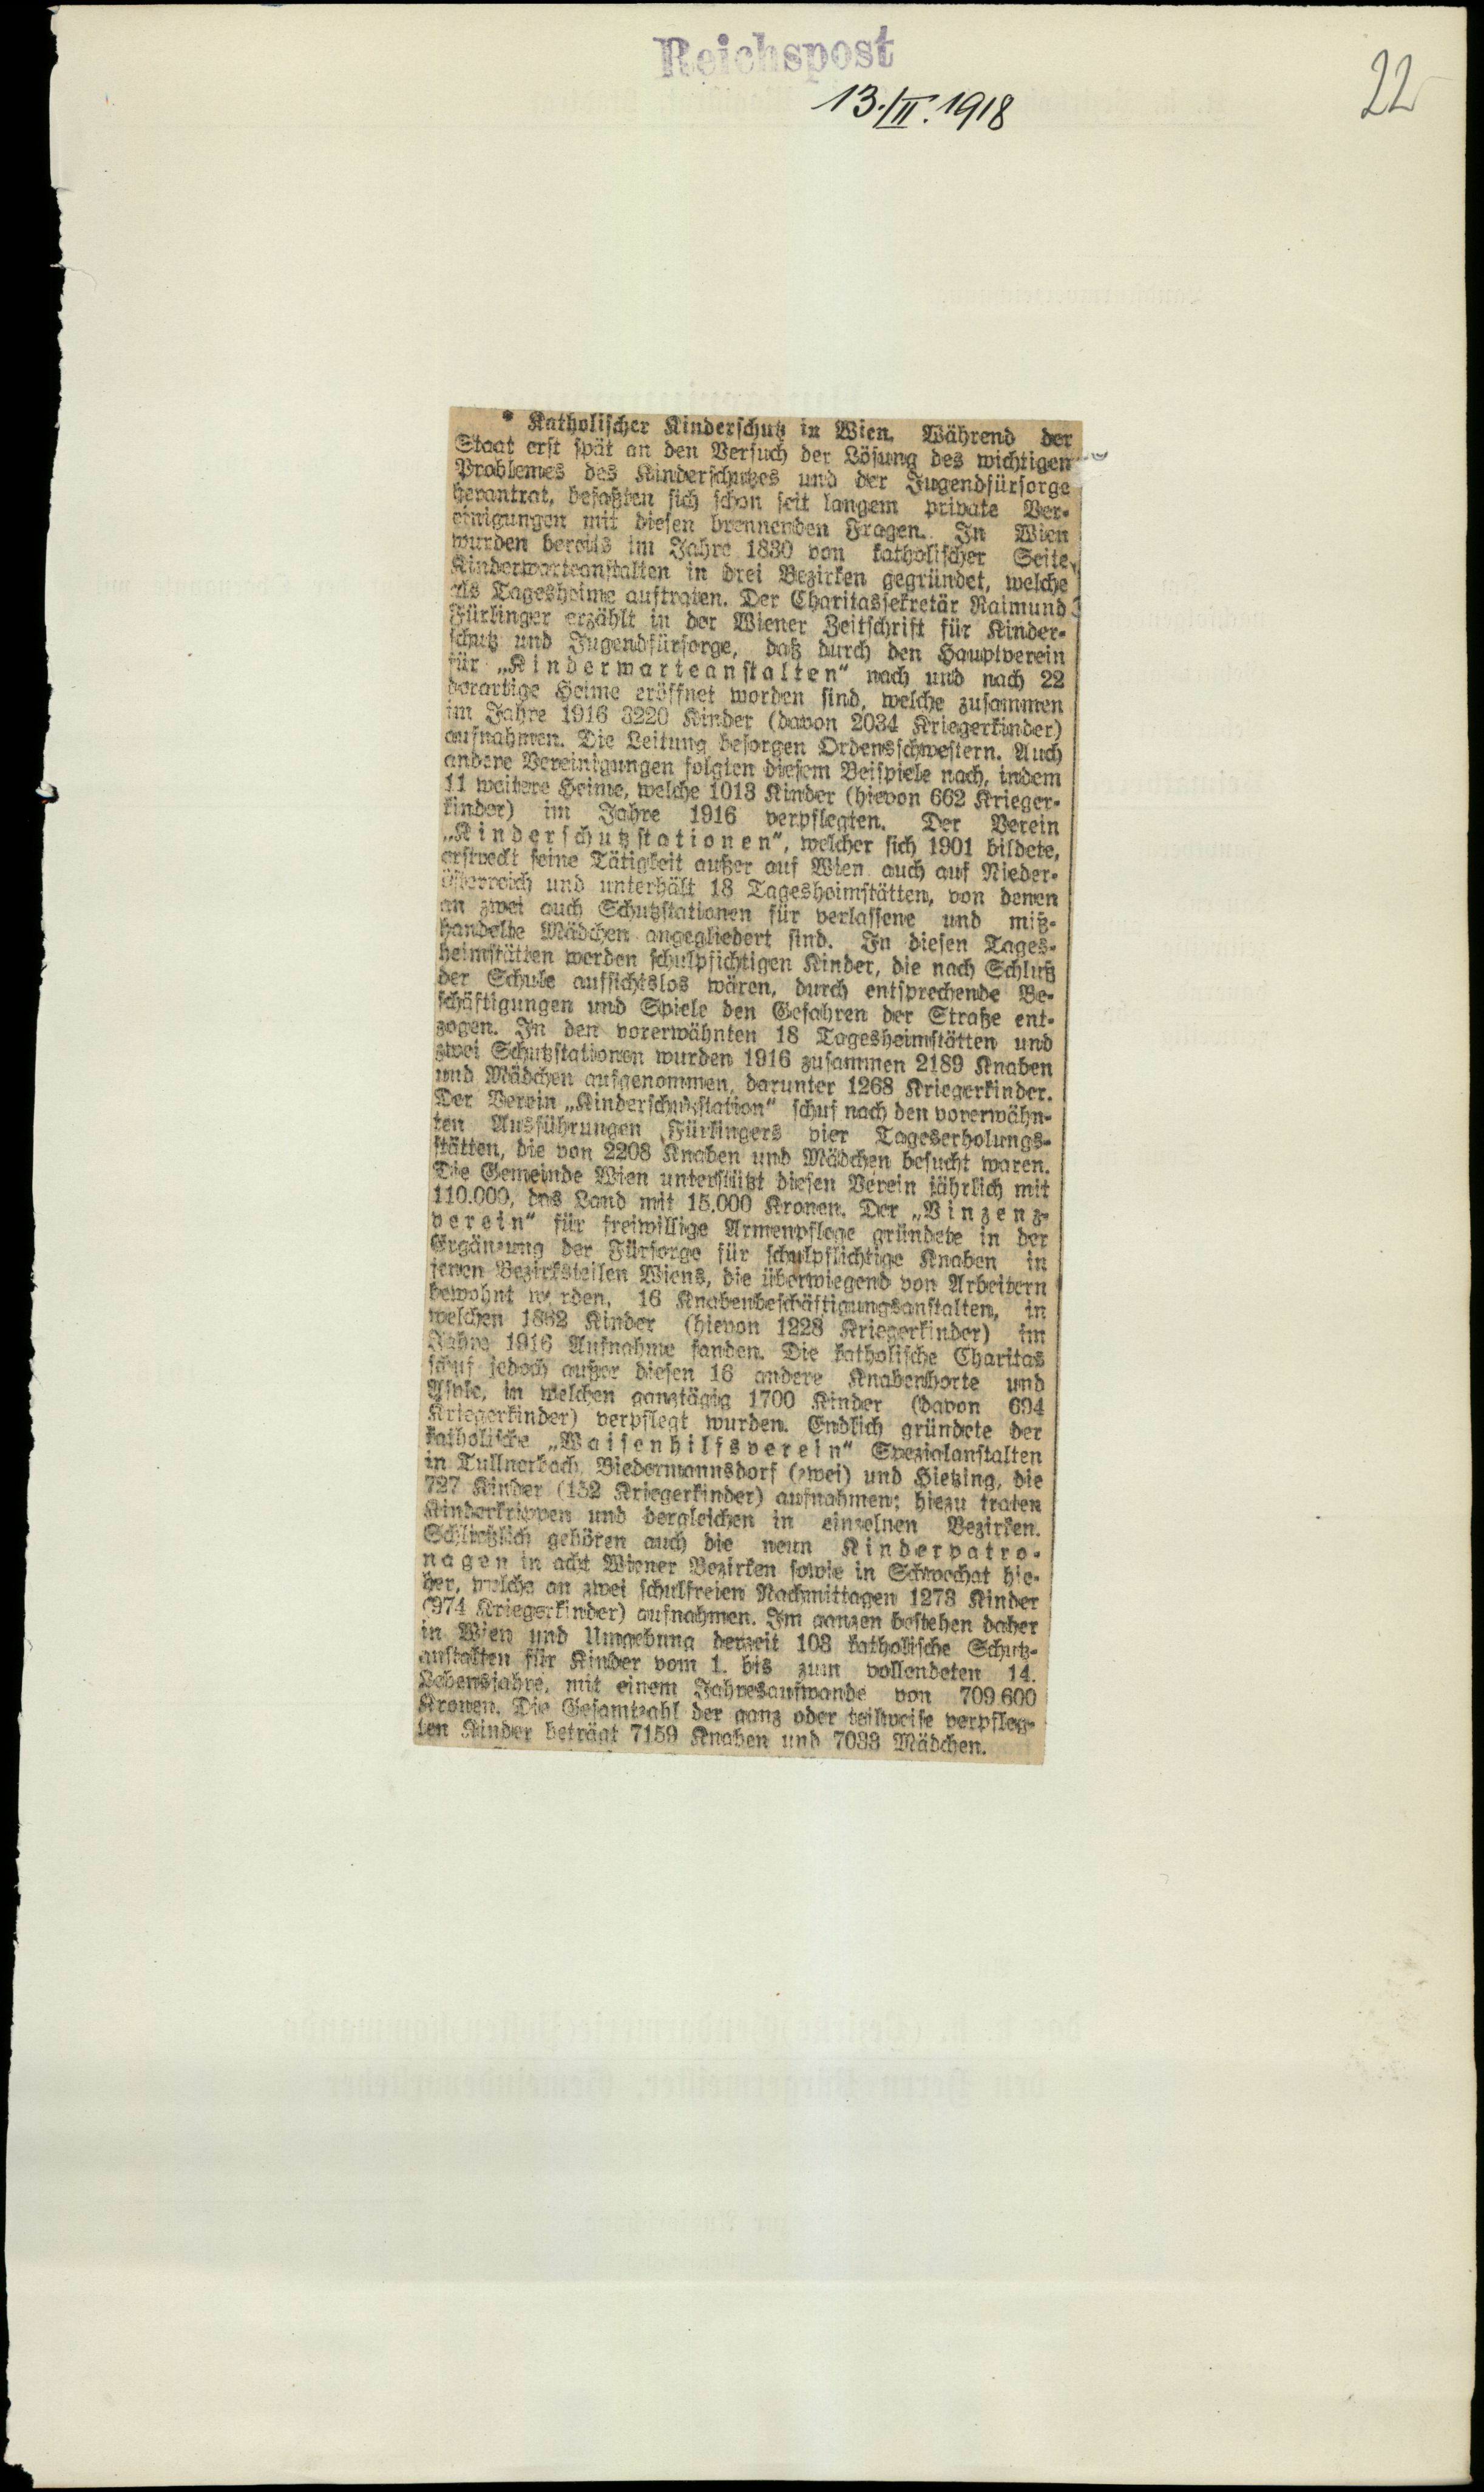 Reichspost
13./II. 1918
22
* Katholischer Kinderschutz in Wien. Während der
Staat erst spät an den Versuch der Lösung des wichtigen
Problemes des Kinderschutzes und der Jugendfürsorge
herantrat, befaßten sich schon seit langem private Ver-
einigungen mit diesen brennenden Fragen. In Wien
wurden bereits im Jahre 1830 von katholischer Seite
Kinderwarteanstalten in drei Bezirken gegründet, welche
als Tagesheime auftraten. Der Charitassekretär Raimund
Fürlinger erzählt in der Wiener Zeitschrift für Kinder-
schutz und Jugendfürsorge, daß durch den Hauptverein
für „Kinderwarteanstalten“ nach und nach 22
derartige Heime eröffnet worden sind, welche zusammen
im Jahre 1916 3220 Kinder (davon 2034 Kriegerkinder)
aufnahmen. Die Leitung besorgen Ordensschwestern. Auch
andere Vereinigungen folgten diesem Beispiele nach, indem
11 weitere Heime, welche 1013 Kinder (hievon 662 Krieger-
kinder) im Jahre 1916 verpflegten. Der Verein
„Kinderschutzstationen“, welcher sich 1901 bildete,
erstreckt seine Tätigkeit außer auf Wien auch auf Nieder-
österreich und unterhält 18 Tagesheimstätten, von denen
an zwei auch Schutzstationen für verlassene und miß-
handelte Mädchen angegliedert sind. In diesen Tages-
heimstätten werden schulpflichtigen Kinder, die nach Schluß
der Schule aufsichtslos wären, durch entsprechende Be-
schäftigungen und Spiele den Gefahren der Straße ent-
zogen. In den vorerwähnten 18 Tagesheimstätten und
zwei Schutzstationen wurden 1916 zusammen 2189 Knaben
und Mädchen aufgenommen, darunter 1268 Kriegerkinder.
Der Verein „Kinderschutzstation“ schuf nach den vorerwähn-
ten Ausführungen Fürlingers vier Tageserholungs-
stätten, die von 2208 Knaben und Mädchen besucht waren.
Die Gemeinde Wien unterstützt diesen Verein jährlich mit
110.000, das Land mit 15.000 Kronen. Der „Vinzenz-
verein“ für freiwillige Armenpflege gründete in der
Ergänzung der Fürsorge für schulpflichtige Knaben in
jenen Bezirksteilen Wiens, die überwiegend von Arbeitern
bewohnt werden, 16 Knabenbeschäftigungsanstalten, in
welchen 1862 Kinder (hievon 1228 Kriegerkinder) im
Jahre 1916 Aufnahme fanden. Die katholische Charitas
schuf jedoch außer diesen 16 andere Knabenhorte und
Asyle, in welchen ganztägig 1700 Kinder (davon 694
Kriegerkinder) verpflegt wurden. Endlich gründete der
katholische „Waisenhilfsverein“ Spezialanstalten
in Tullnerbach, Biedermannsdorf (zwei) und Hietzing, die
727 Kinder (152 Kriegerkinder) aufnahmen; hiezu traten
Kinderkrippen und dergleichen in einzelnen Bezirken.
Schließlich gehören auch die neun Kinderpatro-
nagen in acht Wiener Bezirken sowie in Schwechat hie-
her, welche an zwei schulfreien Nachmittagen 1273 Kinder
(974 Kriegerkinder) aufnahmen. Im ganzen bestehen daher
in Wien und Umgebung derzeit 108 katholische Schutz-
anstalten für Kinder vom 1. bis zum vollendeten 14.
Lebensjahre, mit einem Jahresaufwande von 709.600
Kronen. Die Gesamtzahl der ganz oder teilweise verpfleg-
ten Kinder beträgt 7159 Knaben und 7033 Mädchen.